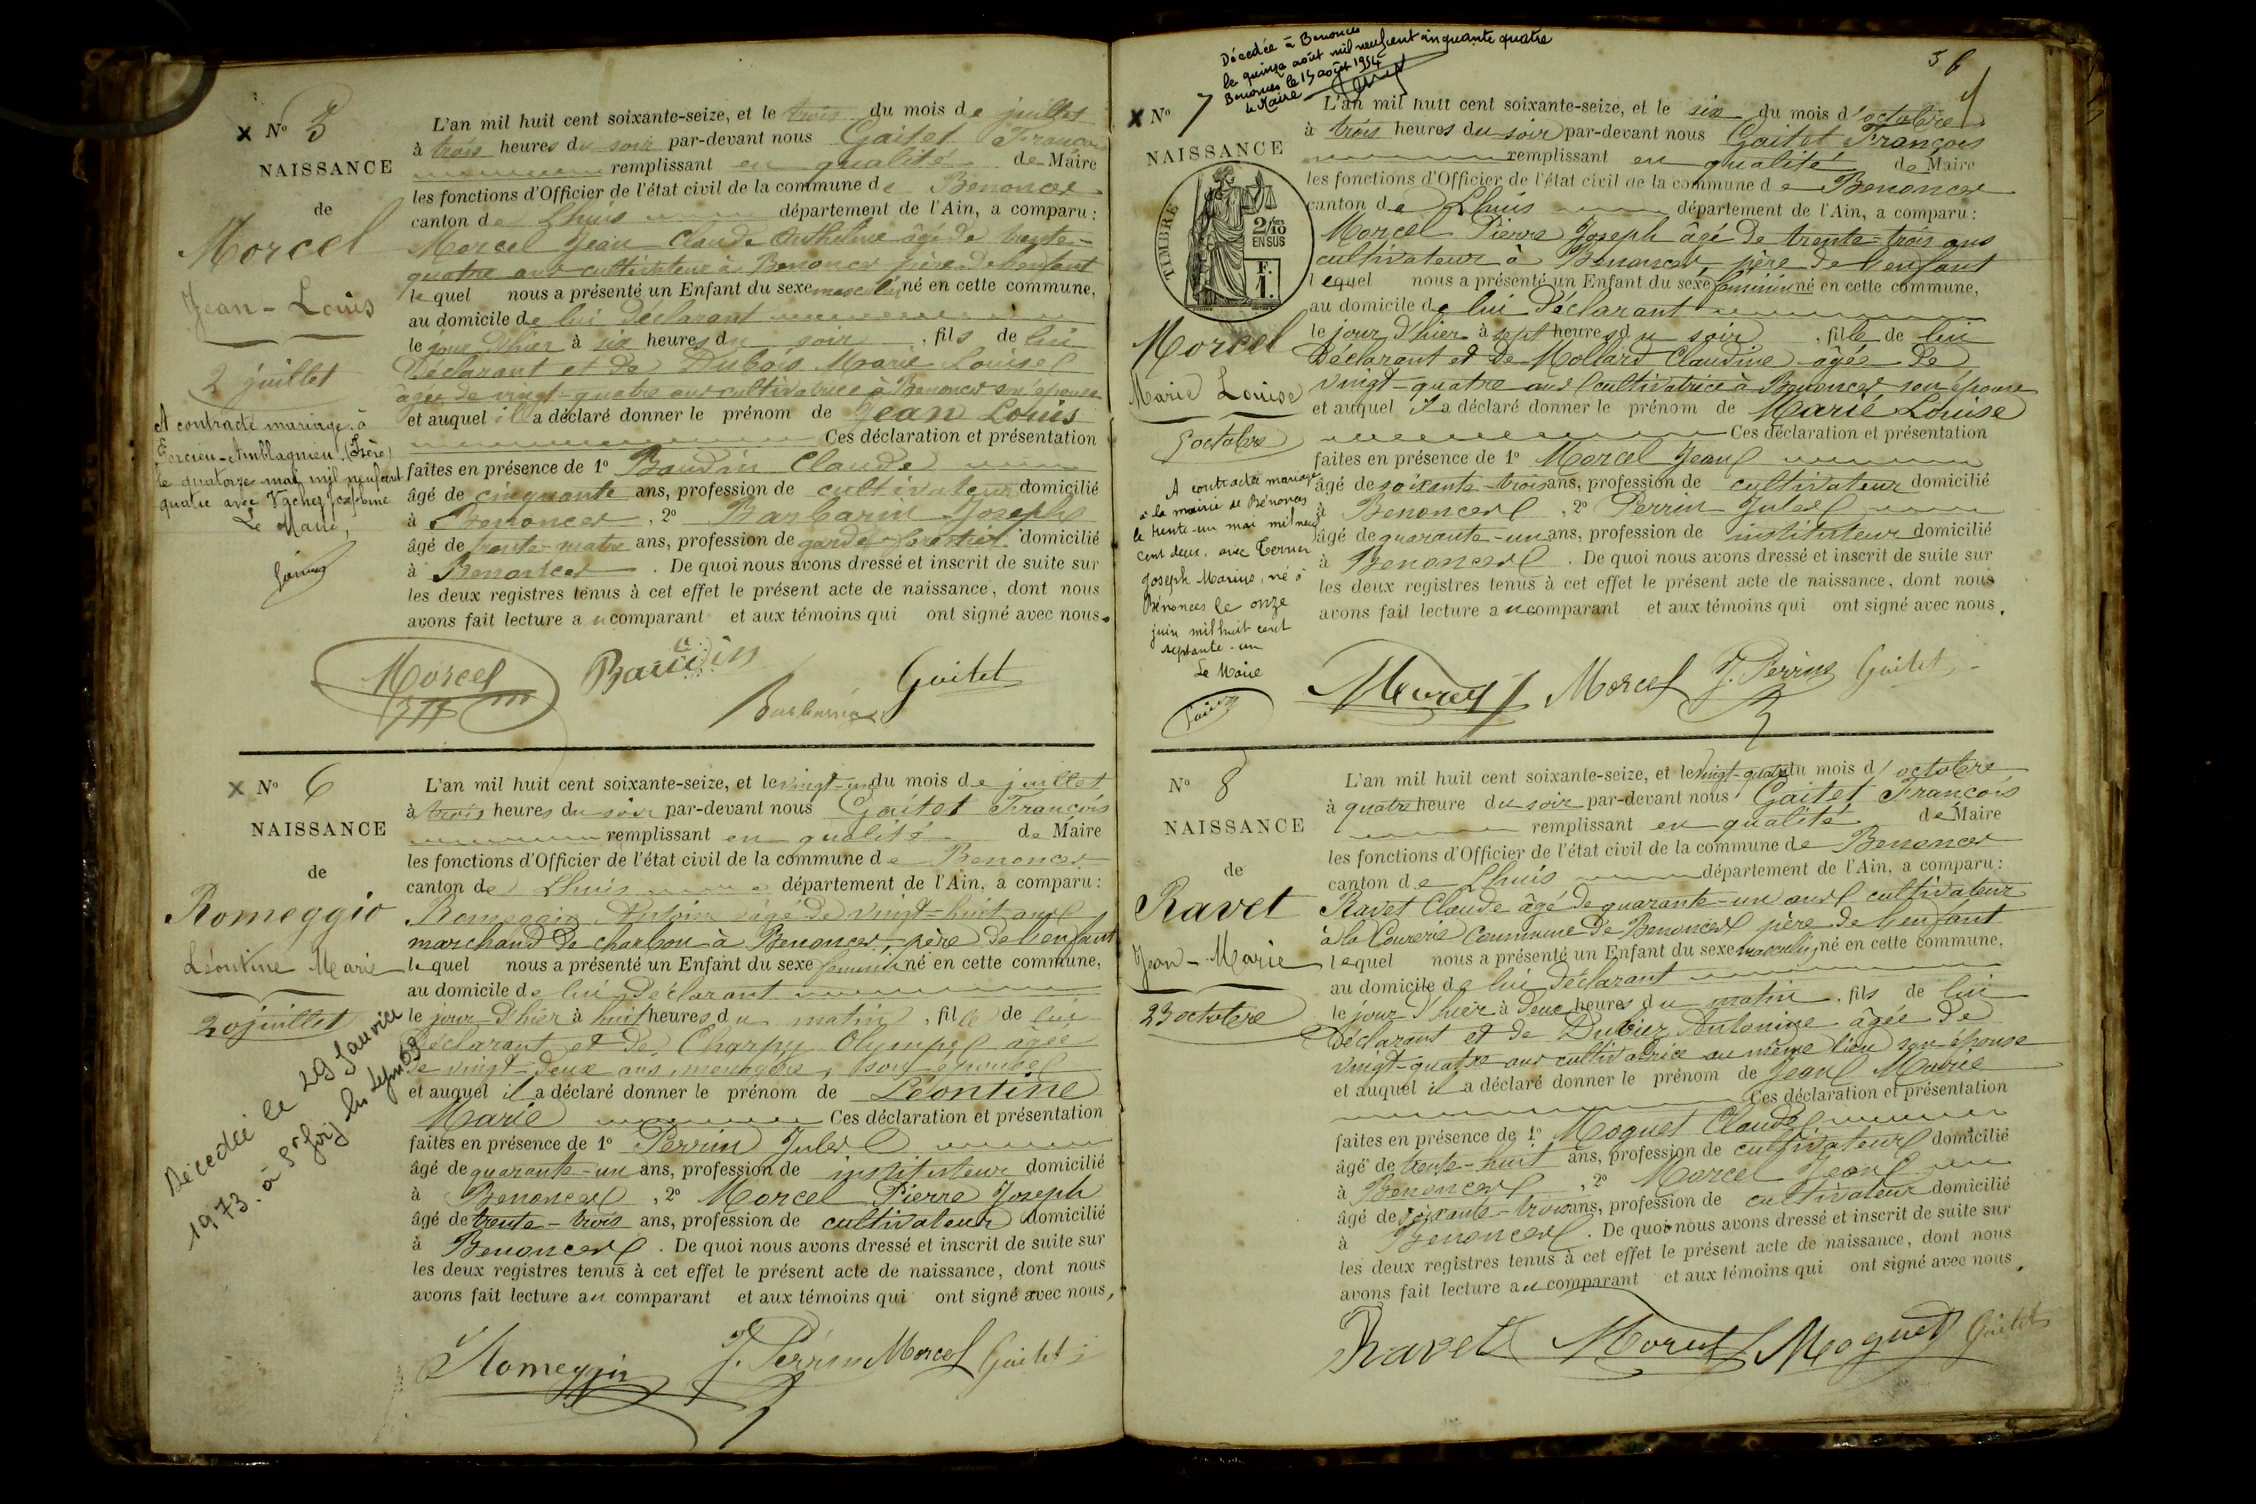 N° 5
NAISSANCE
de
Morcel
Jean-Louis
2 juillet
A contracté mariage à
(Isère)
le quatorze mai mil neuf cent
quatre avec Vacher Joséphine
Le Maire,
L'an mil huit cent soixante-seize, et le trois du mois de juillet
à trois heures du soir par-devant nous Gaitet François
remplissant en qualité de Maire
les fonctions d'Officier de l'état civil de la commune de Benonces
canton de Lhuis département de l'Ain, a comparu :
Morcel Jean Claude Anthelme âgé de trente-
quatre ans cultivateur à Benonces père de l'enfant
lequel nous a présenté un Enfant du sexe masculin né en cette commune,
au domicile de lui déclarant
le jour d'hier à six heures du soir, fils de lui
déclarant et de Dubois Marie Louise
âgée de vingt-quatre ans cultivatrice à Benonces son épouse
et auquel il a déclaré donner le prénom de Jean Louis
Ces déclaration et présentation
faites en présence de 1° Baudin Claude
âgé de cinquante ans, profession de cultivateur domicilié
à Benonces, 2° Barbarin Joseph
âgé de trente-quatre ans, profession de garde-forestier domicilié
à Benonces. De quoi nous avons dressé et inscrit de suite sur
les deux registres tenus à cet effet le présent acte de naissance, dont nous
avons fait lecture au comparant et aux témoins qui ont signé avec nous.
Morcel Baudin Barbarin Gaitet
N° 6
NAISSANCE
de
Romeggio
Léontine Marie
20 juillet
Décédée le 29 Janvier
1973. à St Foy les Lyon 69
L'an mil huit cent soixante-seize, et le vingt-un du mois de juillet
à trois heures du soir par-devant nous Gaitet François
remplissant en qualité de Maire
les fonctions d'Officier de l'état civil de la commune de Benonces
canton de Lhuis département de l'Ain, a comparu :
Romeggio Antoine âgé de vingt-huit ans
marchand de charbon à Benonces, père de l'enfant
lequel nous a présenté un Enfant du sexe féminin né en cette commune,
au domicile de lui déclarant
le jour d'hier à huit heures du matin, fille de lui
déclarant et de Charpy Olympe âgée
de vingt-deux ans, ménagère, son épouse
et auquel il a déclaré donner le prénom de Léontine
Marie Ces déclaration et présentation
faites en présence de 1° Perrin Jules
âgé de quarante-un ans, profession de instituteur domicilié
à Benonces, 2° Morcel Pierre Joseph
âgé de trente-trois ans, profession de cultivateur domicilié
à Benonces. De quoi nous avons dressé et inscrit de suite sur
les deux registres tenus à cet effet le présent acte de naissance, dont nous
avons fait lecture au comparant et aux témoins qui ont signé avec nous,
Romeggio J. Perrin Morcel Gaitet
Décédée à Benonces
le quinze août mil neuf cent cinquante quatre
Benonces le 15 août 1954
le Maire
56
N° 7
NAISSANCE
TIMBRE
2/10 EN SUS
F. 1.
Morcel
Marie Louise
5 octobre
A contracté mariage
à la mairie de Bénonces
le trente-un mai mil neuf
cent deux, avec Cerrier
Joseph Marius, né à
Bénonces le onze
juin mil huit cent
septante-un
Le Maire
L'an mil huit cent soixante-seize, et le six du mois d'octobre
à trois heures du soir par-devant nous Gaitet François
remplissant en qualité de Maire
les fonctions d'Officier de l'état civil de la commune de Benonces
canton de Lhuis département de l'Ain, a comparu :
Morcel Pierre Joseph âgé de trente-trois ans
cultivateur à Benonces, père de l'enfant
lequel nous a présenté un Enfant du sexe féminin né en cette commune,
au domicile de lui déclarant
le jour d'hier à sept heures du soir, fille de lui
déclarant et de Mollard Claudine âgée de
vingt-quatre ans cultivatrice à Benonces son épouse
et auquel il a déclaré donner le prénom de Marie Louise
Ces déclaration et présentation
faites en présence de 1° Morcel Jean
âgé de soixante-trois ans, profession de cultivateur domicilié
à Benonces, 2° Perrin Jules
âgé de quarante-un ans, profession de instituteur domicilié
à Benonces. De quoi nous avons dressé et inscrit de suite sur
les deux registres tenus à cet effet le présent acte de naissance, dont nous
avons fait lecture au comparant et aux témoins qui ont signé avec nous.
Morcel Morcel J. Perrin Gaitet
N° 8
NAISSANCE
de
Ravet
Jean-Marie
23 octobre
L'an mil huit cent soixante-seize, et le vingt-quatre du mois d'octobre
à quatre heure du soir par-devant nous Gaitet François
remplissant en qualité de Maire
les fonctions d'Officier de l'état civil de la commune de Benonces
canton de Lhuis département de l'Ain, a comparu :
Ravet Claude âgé de quarante-un ans cultivateur
à la Courerie commune de Benonces père de l'enfant
lequel nous a présenté un Enfant du sexe masculin né en cette commune,
au domicile de lui déclarant
le jour d'hier à deux heures du matin, fils de lui
déclarant et de Antonine âgée de
vingt-quatre ans cultivatrice au même lieu son épouse
et auquel il a déclaré donner le prénom de Jean Marie
Ces déclaration et présentation
faites en présence de 1° Moquet Claude
âgé de trente-huit ans, profession de cultivateur domicilié
à Benonces, 2° Morcel Jean
âgé de soixante-trois ans, profession de cultivateur domicilié
à Benonces. De quoi nous avons dressé et inscrit de suite sur
les deux registres tenus à cet effet le présent acte de naissance, dont nous
avons fait lecture au comparant et aux témoins qui ont signé avec nous.
Ravet Morcel Moquet Gaitet